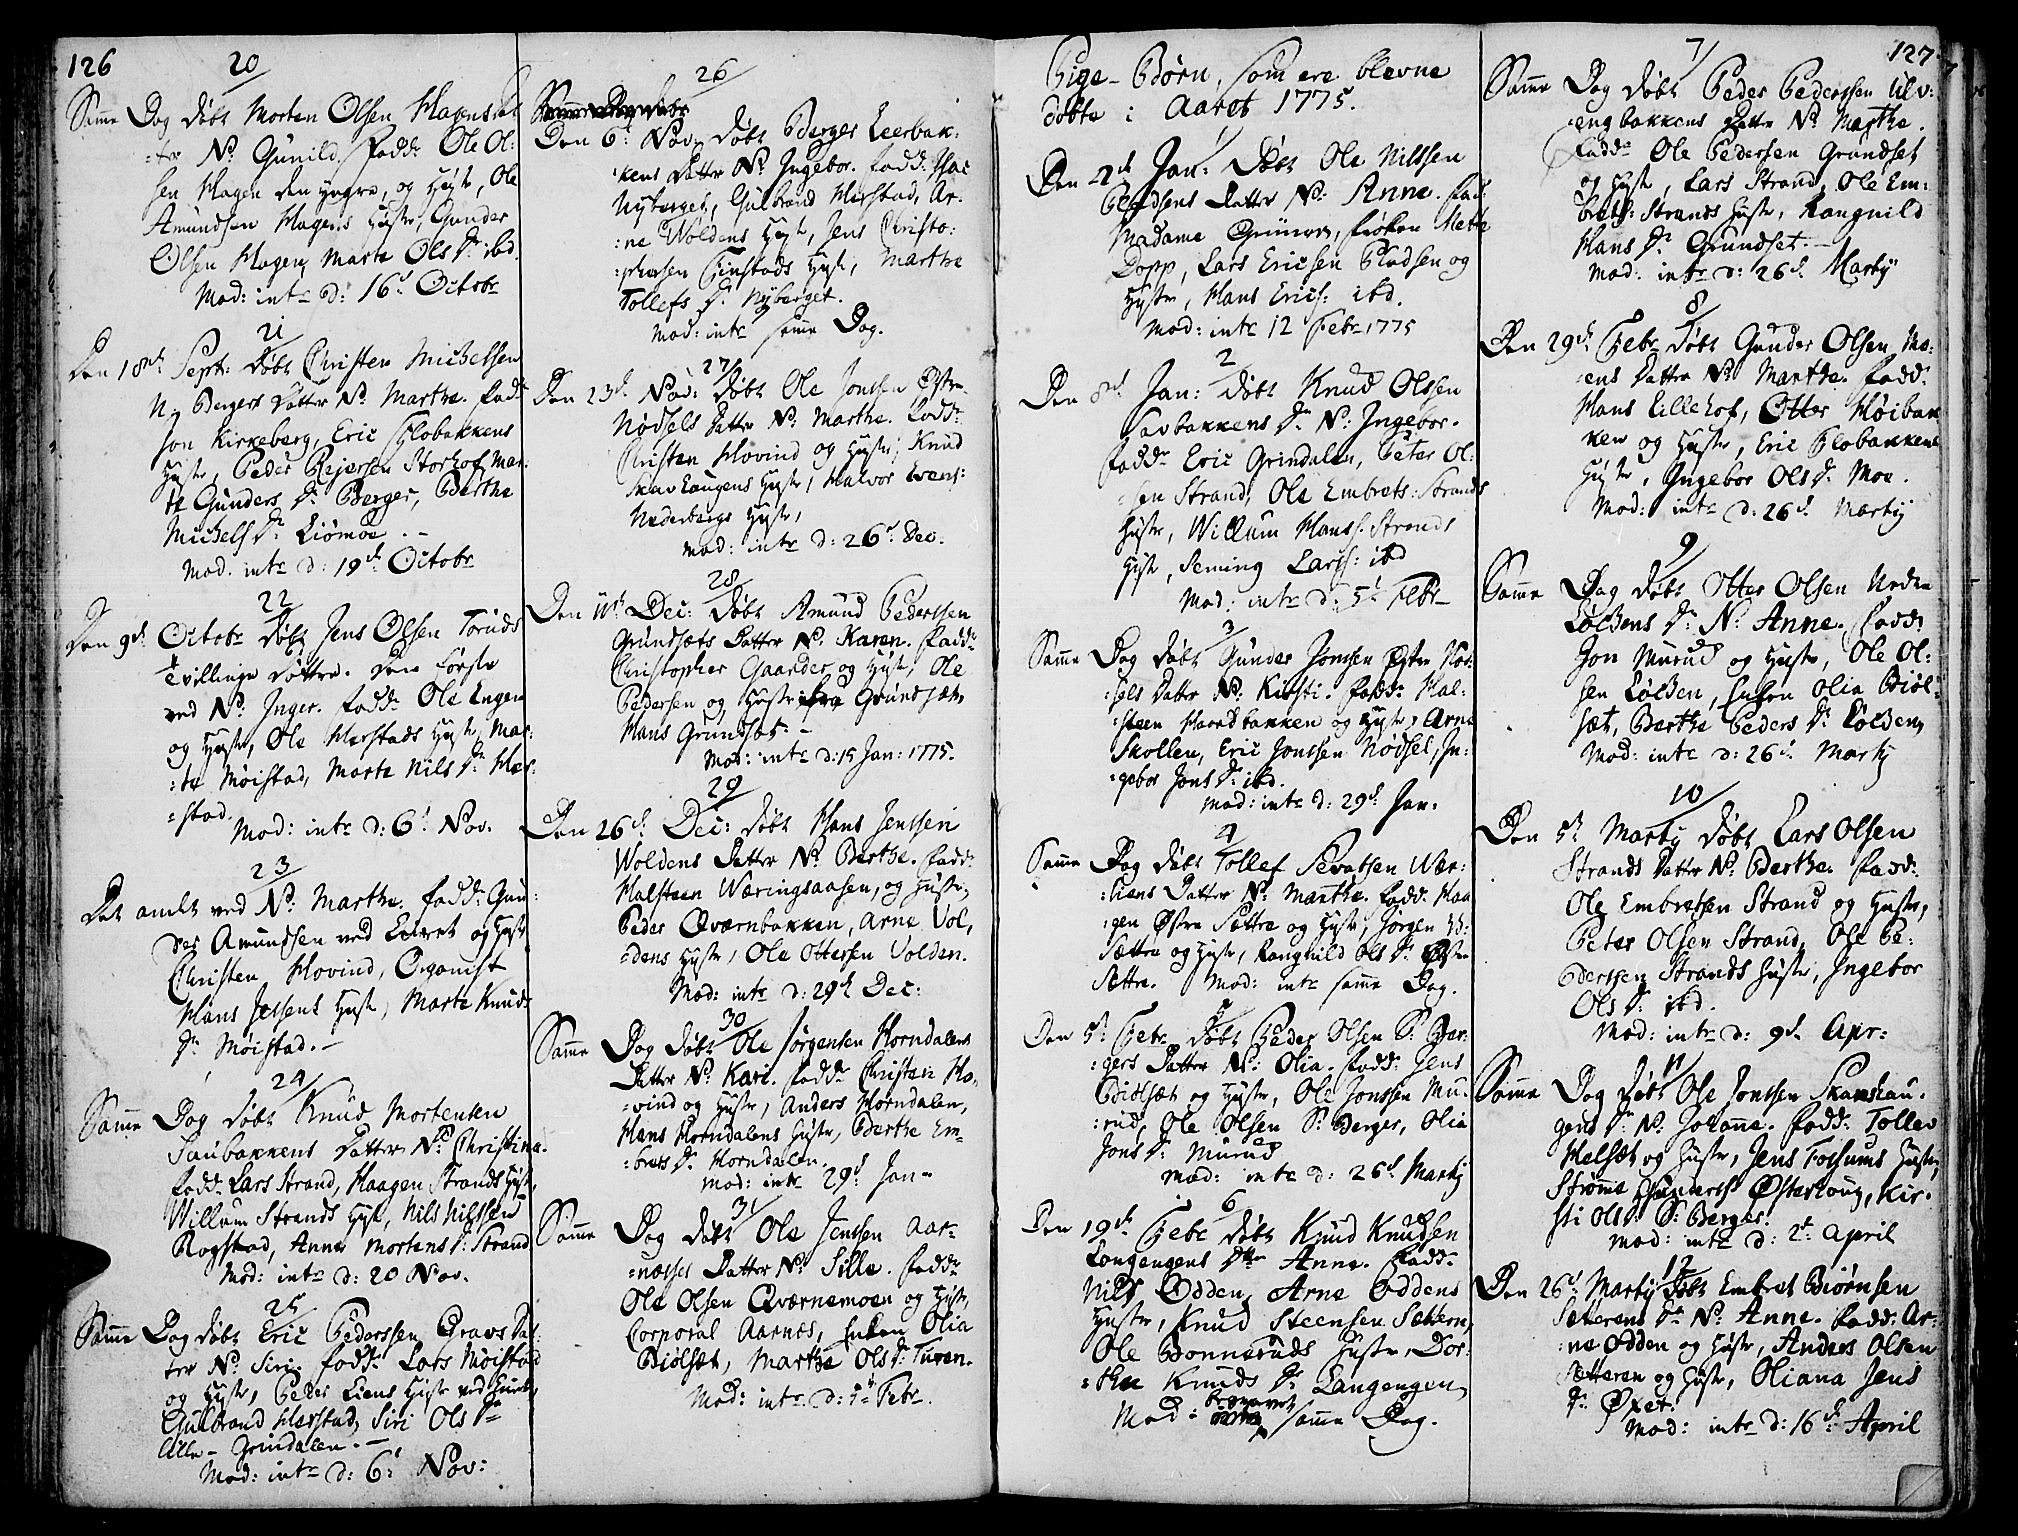 126
20
Samme Dag døbt Morten Olsen Hagens Dat
:ter N: Gunild. fadd: Ole Ol:
sen Hagen den yngre, og Hust, Ole
Amundsen Hagens Hustr, Gunder
Olsen Hagen, Marte Ols Dr ibd.
Mod: intr d: 16d Octobr
21
Den 18de Sept: døbt Christen Michelsen
N: Bergers Datter N: Marthe. fadd
Jon Kirkeberg, Eric Flobakkens
Hustr, Peder Rejersen Storhof, Mar:
te Gunders Dr Berger, Berthe
Michels Dr Liømoe. -
Mod. intr d: 19d Octobr
22
Den 9d Octobr døbt Jens Olsen Toruds
tvillinge Døttre. Den første
ved N: Inger. fadd: Ole Engen
og Hustr, Ole Herstads Hustr, Mar:
:te Møistad, Marte Nils Dr Her:
:stad.
Mod: intr d: 6d Nov.
23
Det andet ved N: Marthe. fadd: Gun:
der Amundsen ved Leeret og Hust
Christen Hovind, Organist
Hans Jessens Hust, Marte Knuds
Dr Møistad. -
24
Samme Dag døbt Knud Mortensen
Saubakkens Datter N: Christina.
fadd: Lars Strand, Haagen Strands Hust,
Willum Strands Hust, Nils Nilssen
Rogstad, Anne Mortens Dr Strand
Mod: intr d: 20 Nov.
25
Samme Dag døbt Eric Pederssen Gravs Dat:
ter N: Siri. fadd: Lars Møistad
og Hustr, Peder Liens Hustr ved
Gulbrand Herstad, Siri Ols Dr
Lille-Grindalen. -
Mod: intr d: 6d Nov:
26
Den 6d Nov: døbt Berger Leerbak:
:kens Datter N: Ingebor. fadd:
Nyberget, Gulbrand Herstad, Ar:
:ne Woldens Hust, Jens Christo:
:phersen Grinstads Hust, Marthe
Tollefs Dr Nyberget.
Mod: intr samme Dag.
27
Den 23d Nov: døbt Ole Jonssen Østre
Nødsels Datter N: Marthe. fadd:
Christen Hovind og Hustr, Knud
Skavhaugens Hust, Halvor Evens:
Nederbergs Hustr,
Mod: intr d: 26d Dec.
28
Den 11te Dec: døbt Amund Pederssen
Grundsæts Datter N: Karen. fadd:
Christopher Gaarder og Hust, Ole
Pedersen og Hustr fra Grundsæt,
Hans Grundset. -
Mod: intr d: 15 Jan: 1775.
29
Den 26d Dec: døbt Hans Jenssen
Woldens Datter N: Berthe. fadd:
Halsteen Wæringsaasen, og Hustr,
Peder Qværnbakken, Arne Vol,
:dens Hustr, Ole Ottersen Volden.
Mod: intr d: 29d Dec:
30
Samme Dag døbt Ole Jørgensen Horndalens
Datter N: Kari. fadd: Christen Ho,
:vind og Hustr, Anders Horndalen,
Hans Horndalens Hustr, Berthe Em-
:brets Dr Horndalen.
Mod: intr 29d Jan-
31
Samme Dag døbt Ole Jenssen Aar-
:næsses Datter N: Sille. fadd:
Ole Olsen Qværnemoen og Hust,
Corporal Aarnæs, Enken Olia
Biølsæt, Marthe Ols Dr Turen.
Mod: intr d: 5te Febr.
Pige-Børn, som ere blevne
døbte i Aaret 1775.
1
Den 2d Jan: døbt Ole Nilssen
Pladsens Datter N: Anne. fad
Madame Grüner, frøken Mette
Dopp, Lars Ericsen Pladsen og
Hustr, Hans Erics: ibd.
Mod: intr 12 Febr 1775
2
Den 8de Jan: døbt Knud Olsen
Savbakkens Dr N: Ingebor.
fadd: Eric Grindalen, Peter Ol:
:sen Strand, Ole Embrets: Strands
Hustr, Willum Hanss: Strands
Hust, Seming Larss: ibd
Mod: intr d: 5d Febr
3
Samme Dag døbt Gunder Jonssen Østre Nød:
:sels Datter N: Kirsti. fadd: Hal:
:steen Haradbakken og Hustr, Arne
Skollen, Eric Jonssen Nødsel, In:
:gebor Jons Dr ibd.
Mod: intr d: 29d Jan.
4
Samme Dag døbt Tollef Sevatsen Vær:
:liens Datter N: Marthe. fadd: Haa
:gen Østre Sættre og Hustr, Jørgen
Sættre og Hustr, Rangnild Ols Dr Østre
Sættre. Mod: intr samme Dag.
5
Den 5t Febr døbt Peder Olsen S: Ber:
:gers Datter N: Olia. fadd: Jens
Biølsæt og Hustr, Ole Jonssen Mu:
:rud, Ole Olsen S: Berger, Olia
Jons Dr Murud
Mod: intr d: 26d Martij
6
Den 19de Febr døbt Knud Knudsen
Langengens Dtter Anne. fadd:
Nils Odden, Arne Oddens
Hustr, Knud Steensen Sættern,
Ole Bonneruds Hustr, Dor:
:thee Knuds Dr Langengen,
Mod: begravet samme Dag.
127
7
Samme Dag døbt Peder Pederssen Ulv:
:engbakkens Datter N: Marthe.
fadd: Ole Pedersen Grundset
og Hust, Lars Strand, Ole Em:
brets: Strands Hustr, Rangnild
Hans Dr Grundset. -
Mod. intr d: 26d Martij
8
Den 29d Febr døbt Gunder Olsen Mo:
:ens Datter N: Marthe. fadd:
Hans Lillehof, Otter Høibak
ken og Hustr, Eric Flobakkens
Hustr, Ingebor Ols Dr Moe.
Mod: intr d: 26d Martij
9
Samme Dag døbt Otter Olsen Nedre
Løldens Dr N: Anne. fadd:
Jon Murud og Hustr, Ole Ol:
sen Løl​den, Enken Olia Biøl:
sæt, Berthe Peders Dr Lølden,
Mod: intr d: 26d Martij
10
Den 5t Martij døbt Lars Olsen
Strands Datter N: Berthe. fadd:
Ole Embretsen Strand og Hustr,
Peter Olsen Strand, Ole Pe:
derssen Strands Hustr, Ingebor
Ols Dr ibd.
Mod: intr d: 9d Apr:
11
Samme Dag døbt Ole Jonssen Skavhau:
gens Dr N: Johanne. fadd: Tollev
Helsæt og Hustr, Jens Torsums Hustr,
Strømme Gunderss: Østerhoug, Kir:
sti Ols Dr S: Berger.
Mod: intr d: 2d April
12
Den 26d Martij døbt Embret Biørnsen
Sætterens Dr N: Anne. fadd: Ar:
:ne Odden og Hustr, Anders Olsen
Sætteren og Hustr, Oliana Jens
Dr Øxet.
Mod: intr d: 16d April